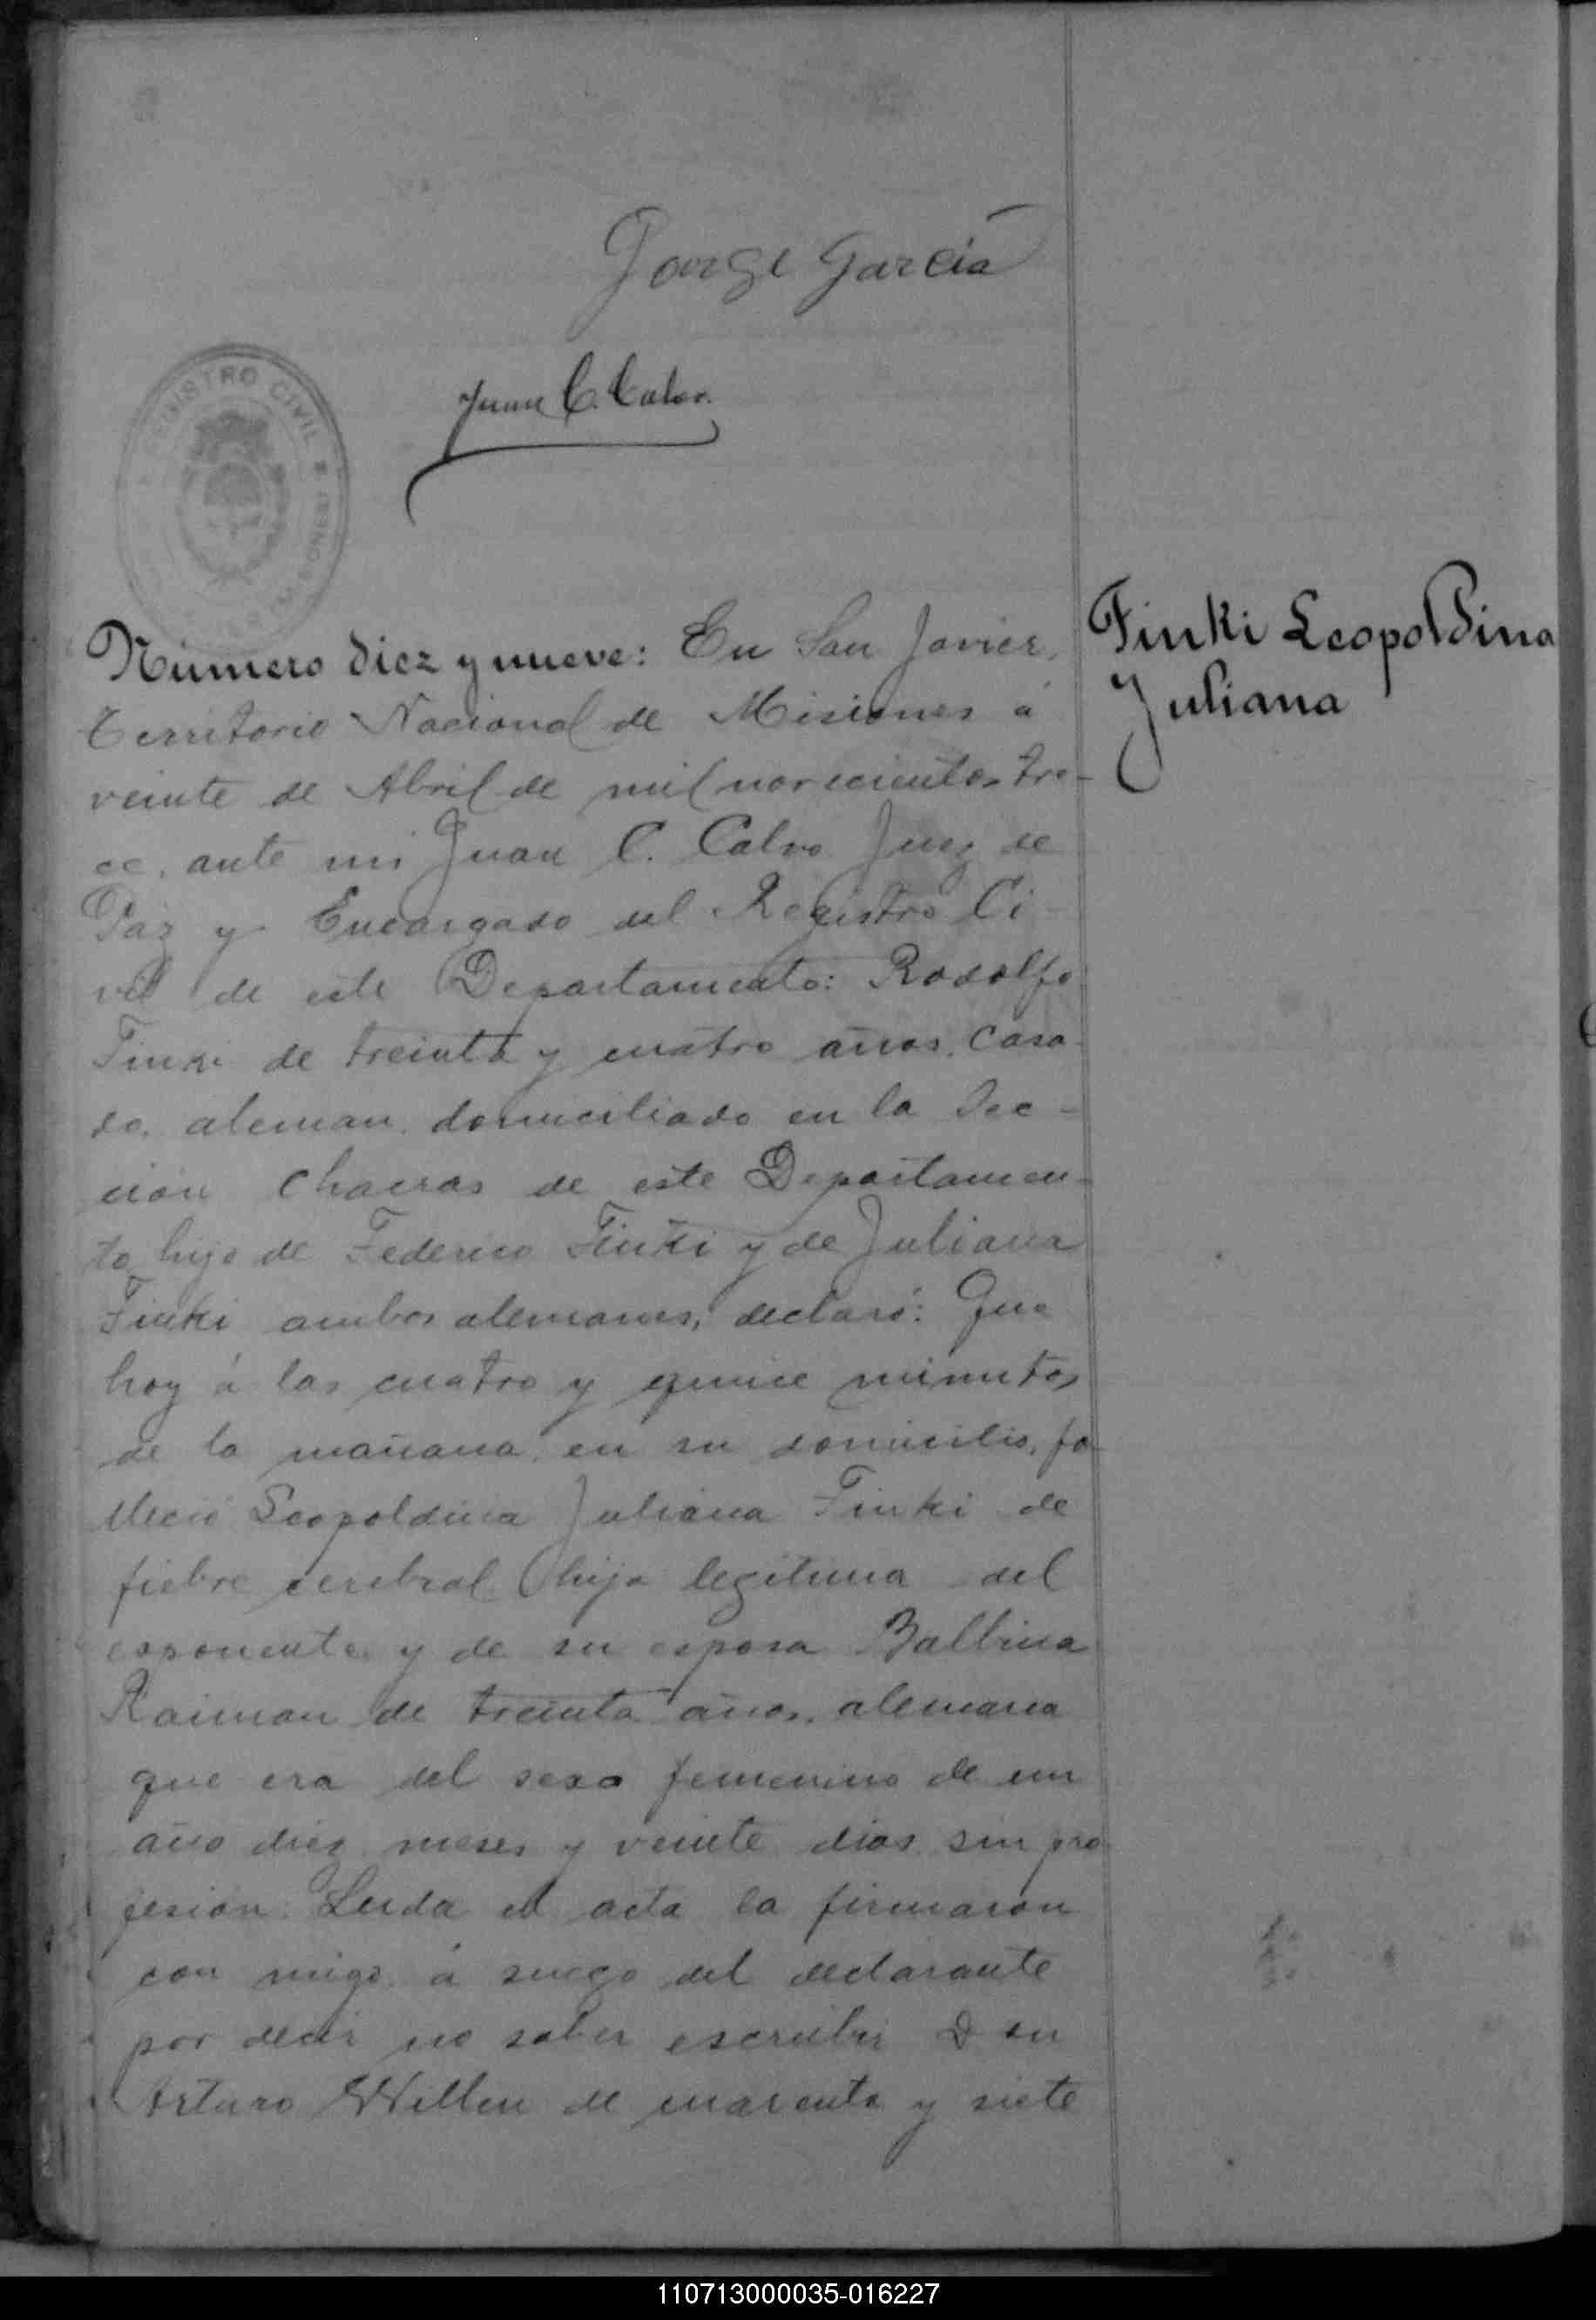 Jorge García
Juan C. Calvo.
REGISTRO CIVIL
Número diez y nueve: En San Javier,
Territorio Nacional de Misiones á
veinte de Abril de mil novecientos tre-
ce, ante mi Juan C. Calvo Juez de
Paz y Encargado del Registro Ci-
vil de este Departamento: Rodolfo
Finki de treinta y cuatro años, casa-
do, aleman, domiciliado en la Sec-
ción Chacras de este Departamen-
to hijo de Federico Finki y de Juliana
Finki ambos alemanes, declaró: Que
hoy á las cuatro y quince minutos
de la mañana, en su domicilio, fa-
lleció Leopoldina Juliana Finki de
fiebre cerebral hija legitima del
exponente y de su esposa Balbina
Raiman de treinta años, alemana
que era del sexo femenino de un
año diez meses y veinte dias sin pro
fesion. Leida el acta la firmaron
con migo, á ruego del declarante
por decir no saber escribir Don
Arturo Willen de cuarenta y siete
Finki Leopoldina
Juliana
110713000035-016227